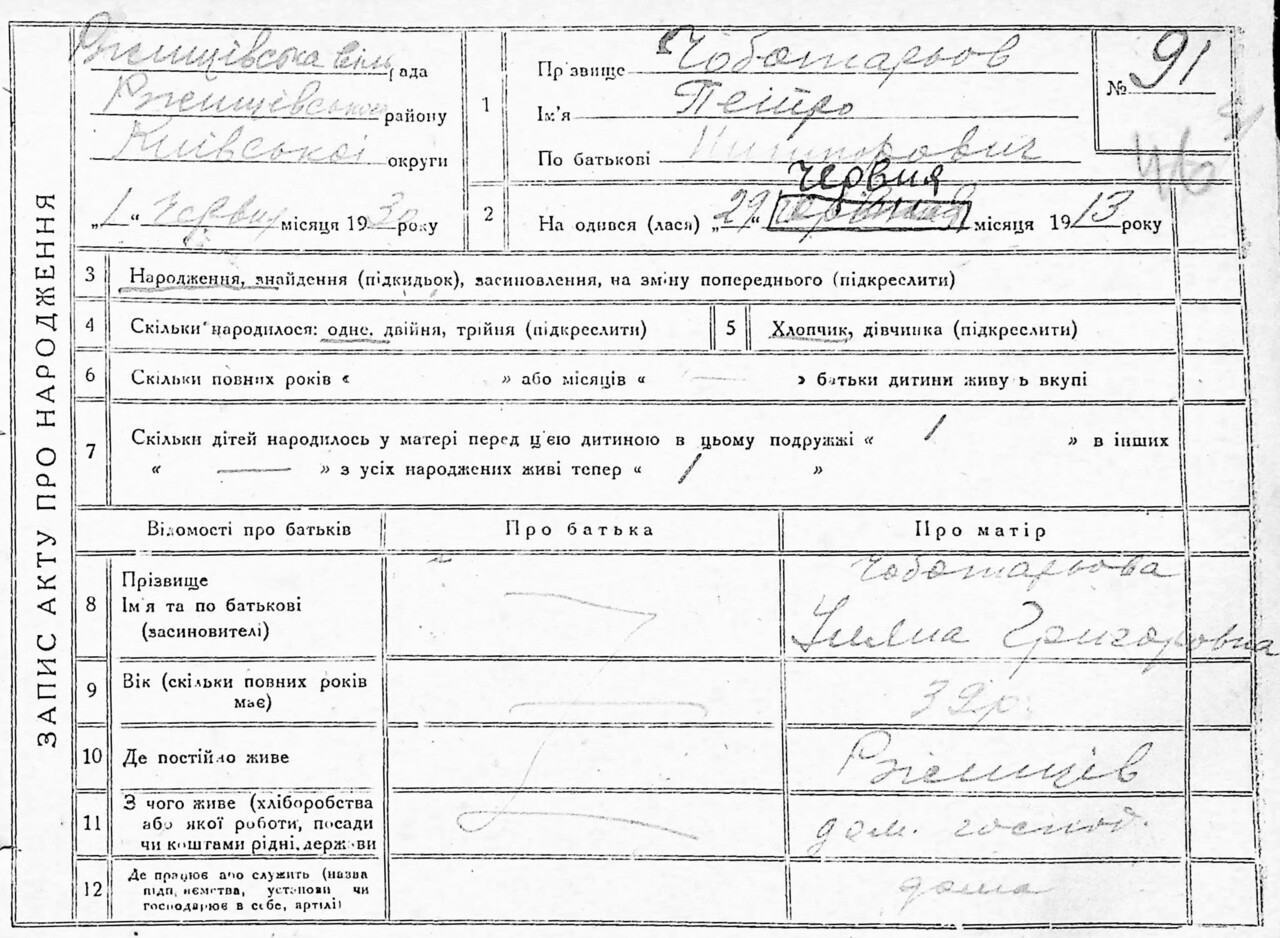 ЗАПИС АКТУ ПРО НАРОДЖЕННЯ
Ржищівська сіль рада
Ржищівського району
Київської округи
„1“ Червня місяця 1930 року
1
Прізвище Чоботарьов
Ім'я Пейтро
По батькові
№ 91
46
2
На одився (лася) „29“ червня місяця 1913 року
3 Народження, знайдення (підкидьок), засиновлення, на зміну попереднього (підкреслити)
4 Скільки народилося: одне, двійня, трійня (підкреслити)
5 Хлопчик, дівчинка (підкреслити)
6 Скільки повних років « » або місяців « — » батьки дитини живу ь вкупі
7 Скільки дітей народилось у матері перед ц'єю дитиною в цьому подружжі « 1 » в інших
« — » з усіх народжених живі тепер « 1 »
Відомості про батьків Про батька Про матір
8 Прізвище Чоботарьова
Ім'я та по батькові Уляна Григоровна
(засиновителі)
9 Вік (скільки повних років має) — 39р.
10 Де постійно живе Ржищев
11 З чого живе (хліборобства або якої роботи, посади чи коштами рідні, держави — дом. господ.
12 Де працює або служить (назва підприємства, установи чи господарює в себе, артілі) дома